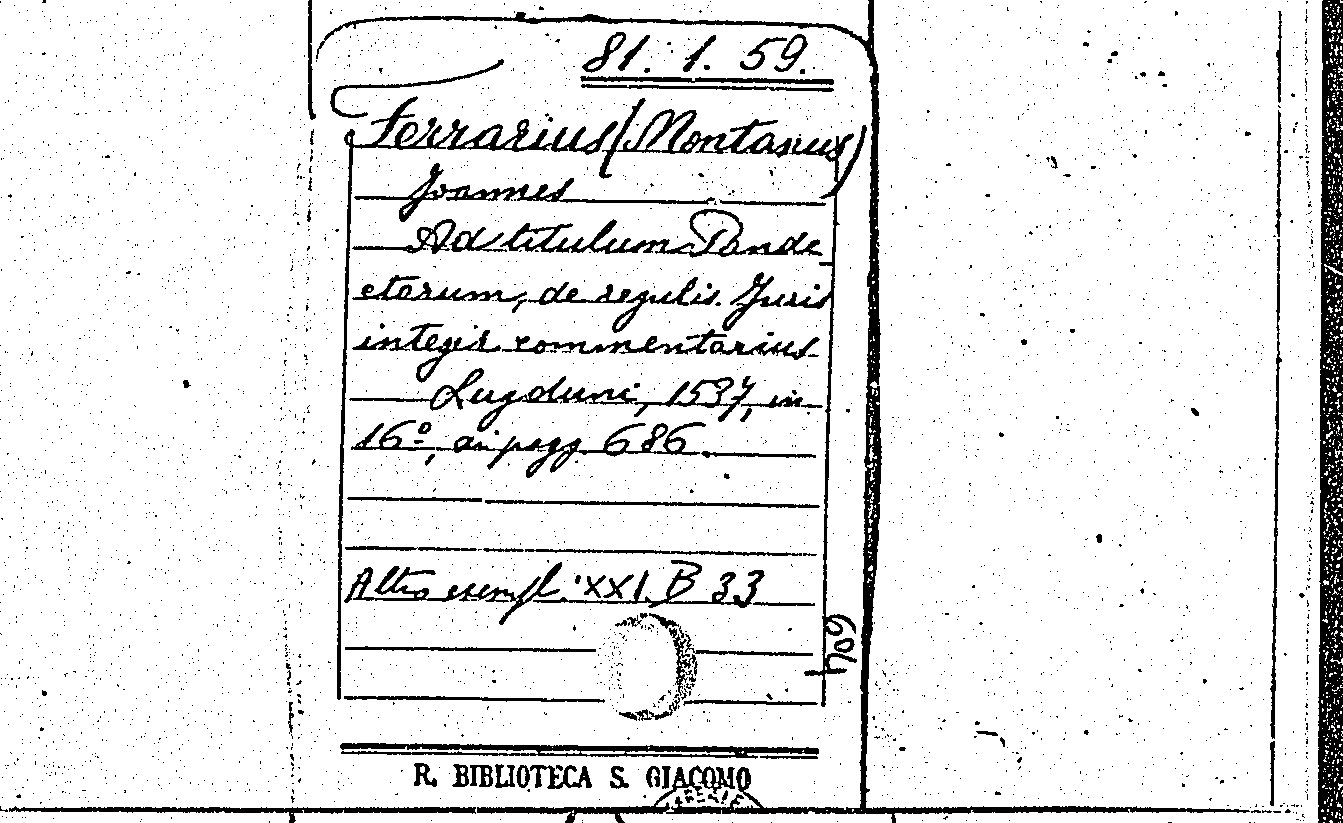 81. 1. 59.
Ferrarius (Montanus)
Joannes
Ad titulum Pande
ctarum, de regulis Juris
integer commentarius
Lugduni, 1537, in
16º, di pagg. 686.
Altro esempl. XXI. B 33
604
R. BIBLIOTECA S. GIACOMO